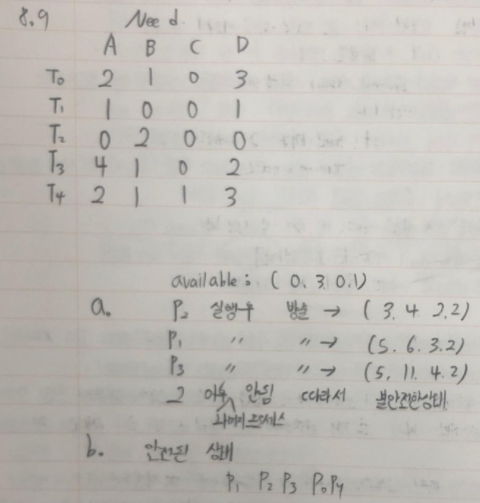 8.9 Need
A B C D
T0 2 1 0 3
T1 1 0 0 1
T2 0 2 0 0
T3 4 1 0 2
T4 2 1 1 3
available : ( 0. 3. 0. 1)
a. P2 실행후 방출 → ( 3. 4 2.2)
P1 〃 〃 → (5. 6. 3. 2)
P3 〃 〃 → (5, 11. 4. 2)
그 안됨 따라서 불안전한상태
b. 안전된 상태
P1 P2 P3 P0 P4